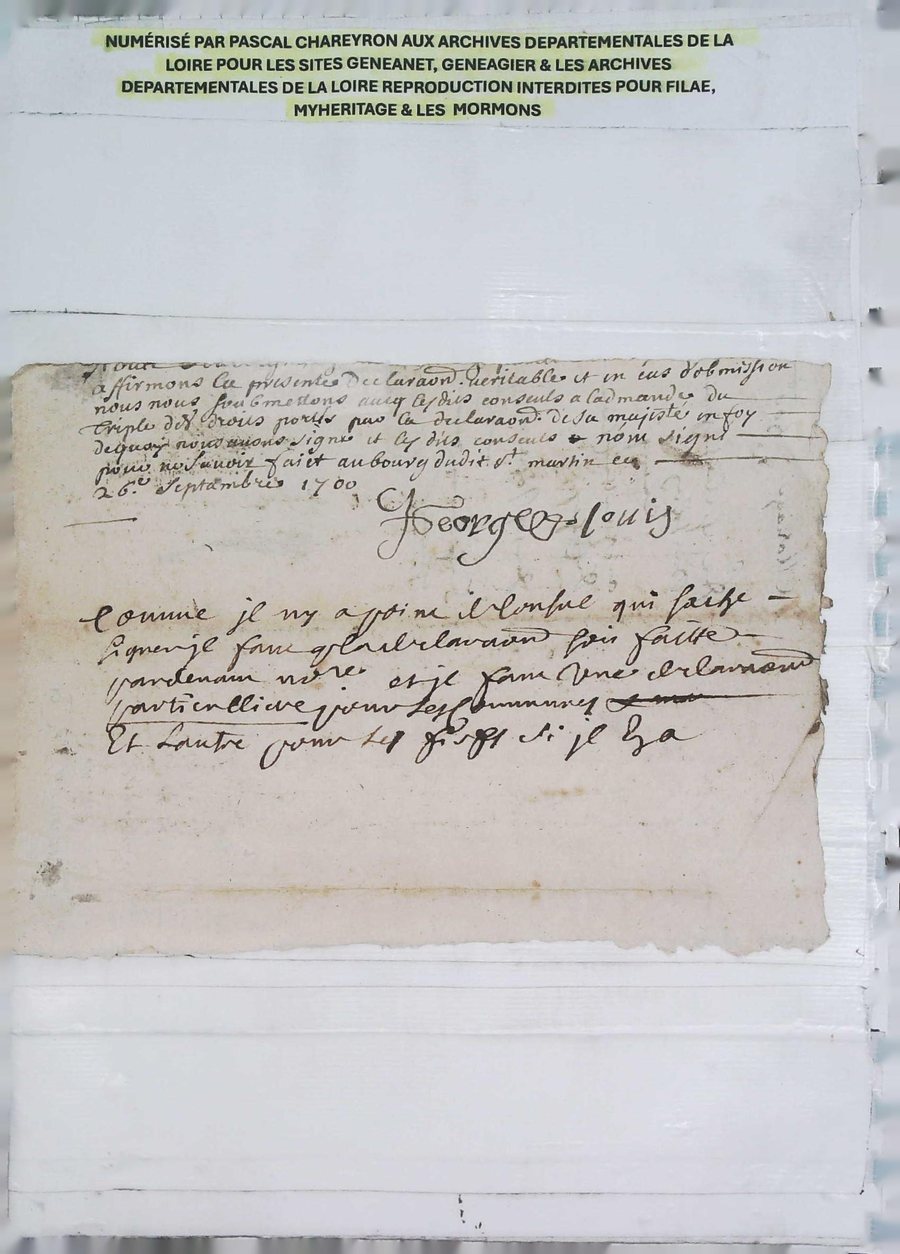 NUMÉRISÉ PAR PASCAL CHAREYRON AUX ARCHIVES DEPARTEMENTALES DE LA
LOIRE POUR LES SITES GENEANET, GENEAGIER & LES ARCHIVES
DEPARTEMENTALES DE LA LOIRE REPRODUCTION INTERDITES POUR FILAE,
MYHERITAGE & LES MORMONS
affirmons la presente declaraon. veritable et en cas d'obmission
nous nous soubmettons avecq lesdits consuls a ladmande du
triple des droits portés par la declaraon. de sa majesté en foy
dequoy nous avons signé et lesdits consuls nom signé
pour ne savoir faict au bourg dudit St. martin ce
26.e Septembre 1700
George Louis
Comme jl ny a point de Consul qui sache
signer jl faut q la declaraon soit faitte
pardevant nore et jl faut Une declaraon
particulliere pour les Communes
Et Lautre pour les fiefs si jl Eya